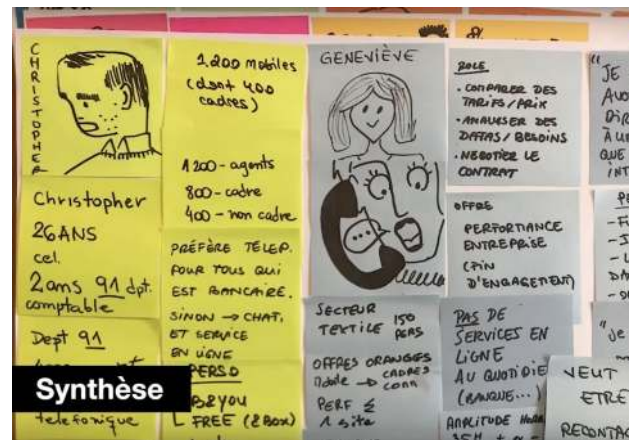 CHRISTOPHER
Christopher
26ANS
cel.
2ans 91 dpt.
comptable
Dept 91
telefonique
1.200 mobiles
(dont 400
cadres)
1200-agents
800-cadre
400-non cadre
PRÉFÈRE TÉLEP.
POUR TOUS QUI
EST BANCAIRE.
SINON → CHAT,
ET SERVICE
EN LIGNE
PERSO
B&YOU
FREE (2Box)
GENEVIÈVE
SECTEUR
TEXTILE 150
PERS
OFFRES ORANGES
Mobile → CADRES
COMM
PERF ≤
1 site
ROLE
• COMPARER DES
TARIFS/PRIX
• ANALYSER DES
DATAS/BESOINS
• NEGOTIER LE
CONTRAT
OFFRE
PERFORMANCE
ENTREPRISE
(FIN
D'ENGAGEMENT)
PAS DE
SERVICES EN
LIGNE
AU QUOTIDIE
(BANQUE...)
AMPLITUDE HORA
"JE
AVO
DIR
À L
QUE
INT
"je
VEUT
ETRE
RECONTAC
Synthèse